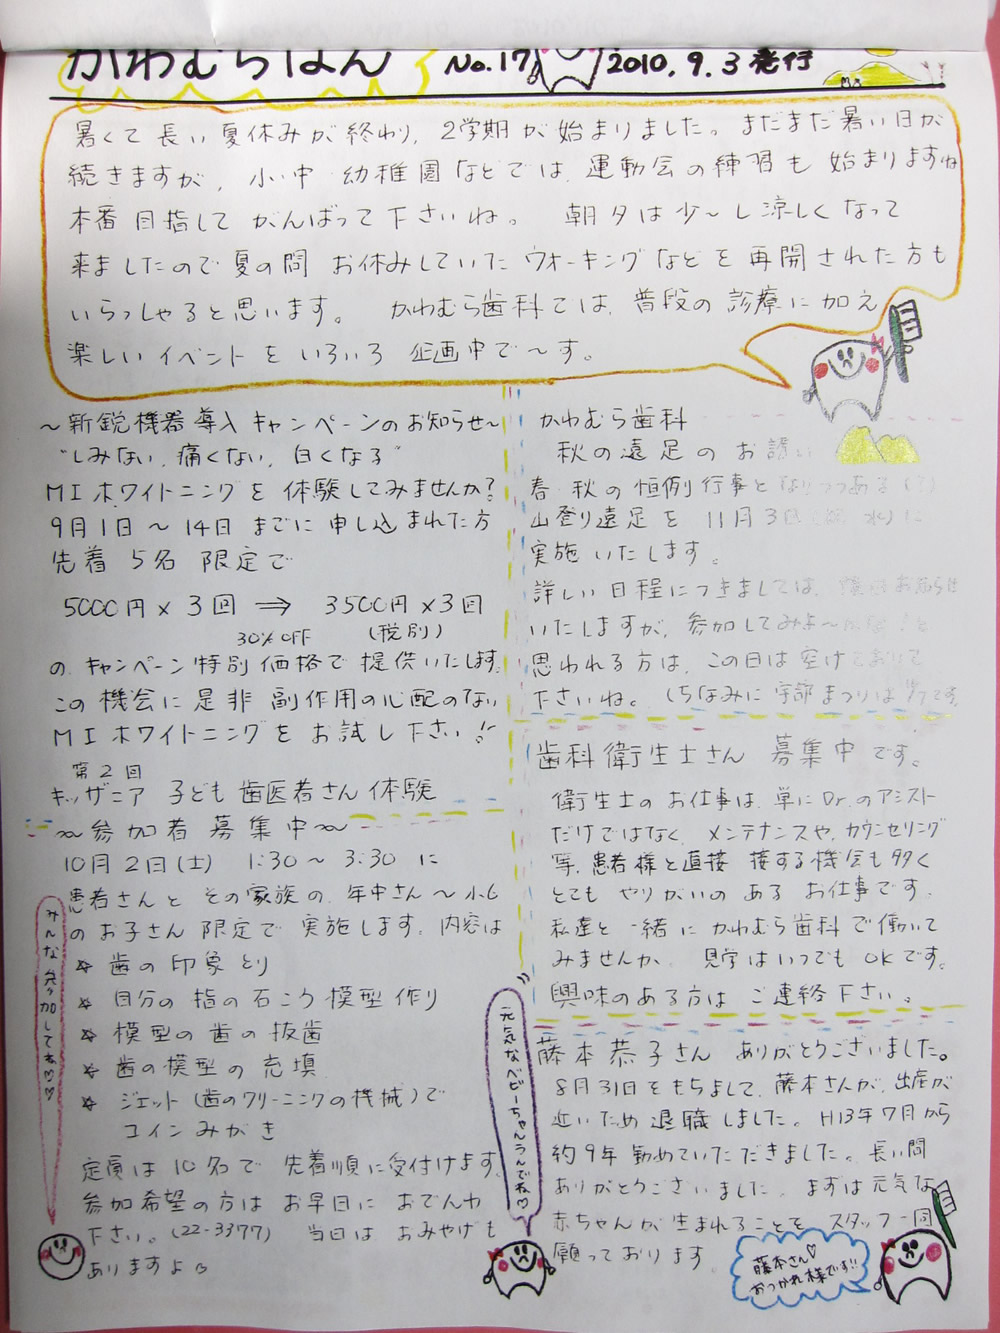 かわむらはん No.17 2010.9.3発行
暑くて長い夏休みが終わり、2学期が始まりました。まだまだ暑い日が
続きますが、小・中 幼稚園などでは、運動会の練習も始まりますね
本番目指してがんばって下さいね。 朝夕は少〜し涼しくなって
来ましたので夏の間お休みしていたウォーキングなどを再開された方も
いらっしゃると思います。 かわむら歯科では、普段の診療に加え
楽しいイベントをいろいろ企画中で〜す。
〜新鋭機器導入キャンペーンのお知らせ〜
"しみない、痛くない、白くなる"
MIホワイトニングを体験してみませんか?
9月1日〜14日までに申し込まれた方
先着5名限定で
5000円×3回 ⇒ 3500円×3回
30%OFF (税別)
のキャンペーン特別価格で提供いたします。
この機会に是非副作用の心配のない
MIホワイトニングをお試し下さい!!
第2回
キッザニア 子ども歯医者さん体験
〜参加者募集中〜
10月2日(土) 1:30〜3:30に
患者さんとその家族の、年中さん〜小6
のお子さん限定で実施します。内容は
☆歯の印象とり
☆自分の指の石こう模型作り
☆模型の歯の抜歯
☆歯の模型の充填
☆ジェット(歯のクリーニングの機械)で
コインみがき
定員は10名で先着順に受付けます。
参加希望の方はお早目におでんわ
下さい。(22-3377) 当日はおみやげも
ありますよ
みんな参加してね♡♡
かわむら歯科
秋の遠足のお誘い
春・秋の恒例行事となりつつある(?)
山登り遠足を11月3日 水)に
実施いたします。
詳しい日程につきましては、 お知らせ
いたしますが、参加してみよ〜 と
思われる方は、この日は空けておいて
下さいね。(ちなみに宇部まつりは です
歯科衛生士さん 募集中です。
衛生士のお仕事は、単にDr.のアシスト
だけではなく、メンテナンスや、カウンセリング
等、患者様と直接接する機会も多く
とてもやりがいのあるお仕事です。
私達と一緒にかわむら歯科で働いて
みませんか。 見学はいつでもOKです。
興味のある方はご連絡下さい。
藤本恭子さん ありがとうございました。
8月31日をもちまして、藤本さんが、出産が
近いため退職しました。H13年7月から
約9年勤めていただきました。長い間
ありがとうございました。まずは元気な
赤ちゃんが生まれることを スタッフ一同
願っております。
元気なベビーちゃんうんでね♡
藤本さん♡
おつかれ様です!!